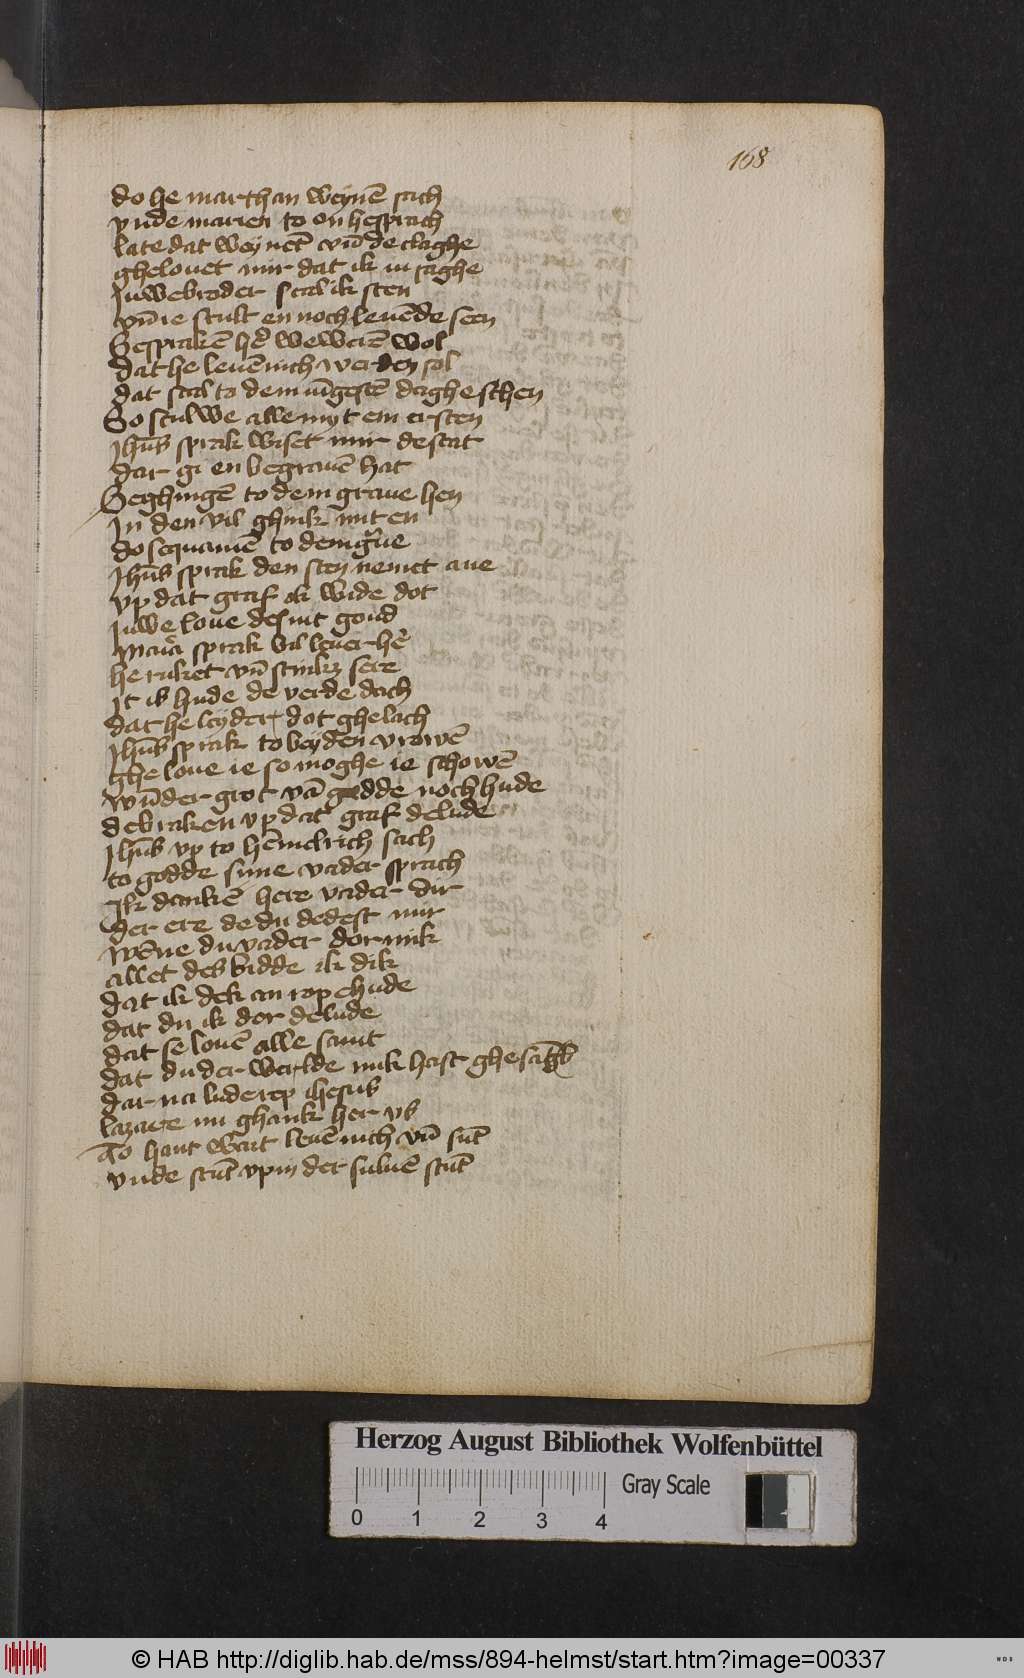 168
do he marthan weynē sach
vnde marien to on he sprach
late dat weynēt vn̄ de claghe
ghelouet mir dat ik iu saghe
Juwe broder scal ik sten
vn̄ ie scult en noch leuēde seen
Se sprakē he᷑ we werē wol
dat he leuēnich werden sol
dat scal to dem iūgestē daghe schen
So scul we alle myt em ersten
Jhūs sprak wiset mir de stat
dar gi en begrauē hat
Se ghingē to dem graue hen
In den vil ghink mit en
do se quamē to dem g̾ue
Jhūs sprak den sten nemet aue
vp dat graf ik wide dot
Juwe loue des int goud
Maria sprak vil leuer he᷑
he ruket vn̄ stinkz sere
It is hude de verde dach
dat he leyder dot ghelach
Jhūs sprak to beyden vrowē
ghe loue ie so moghe ie schowē
wūder grot vā godde noch hude
de braken vp dat graf de lude
Jhūs vp to hēmelrich sach
to godde sime vader sprach
Ik dankē here vader dir
der ere de du dedest mir
wēne du vader dor mik
allet des bidde ik dik
dat ik dek an rope hude
dat du ik dor de lude
dat se louē alle samt
dat du der werlde mik hast ghesāt
dar na lude rep ihesus
lazare nu ghank her vs
To hant wart leuēnich vn̄ sūt
vnde stūt vp in der suluē stūt
Herzog August Bibliothek Wolfenbüttel
0 1 2 3 4
Gray Scale
© HAB http://diglib.hab.de/mss/894-helmst/start.htm?image=00337